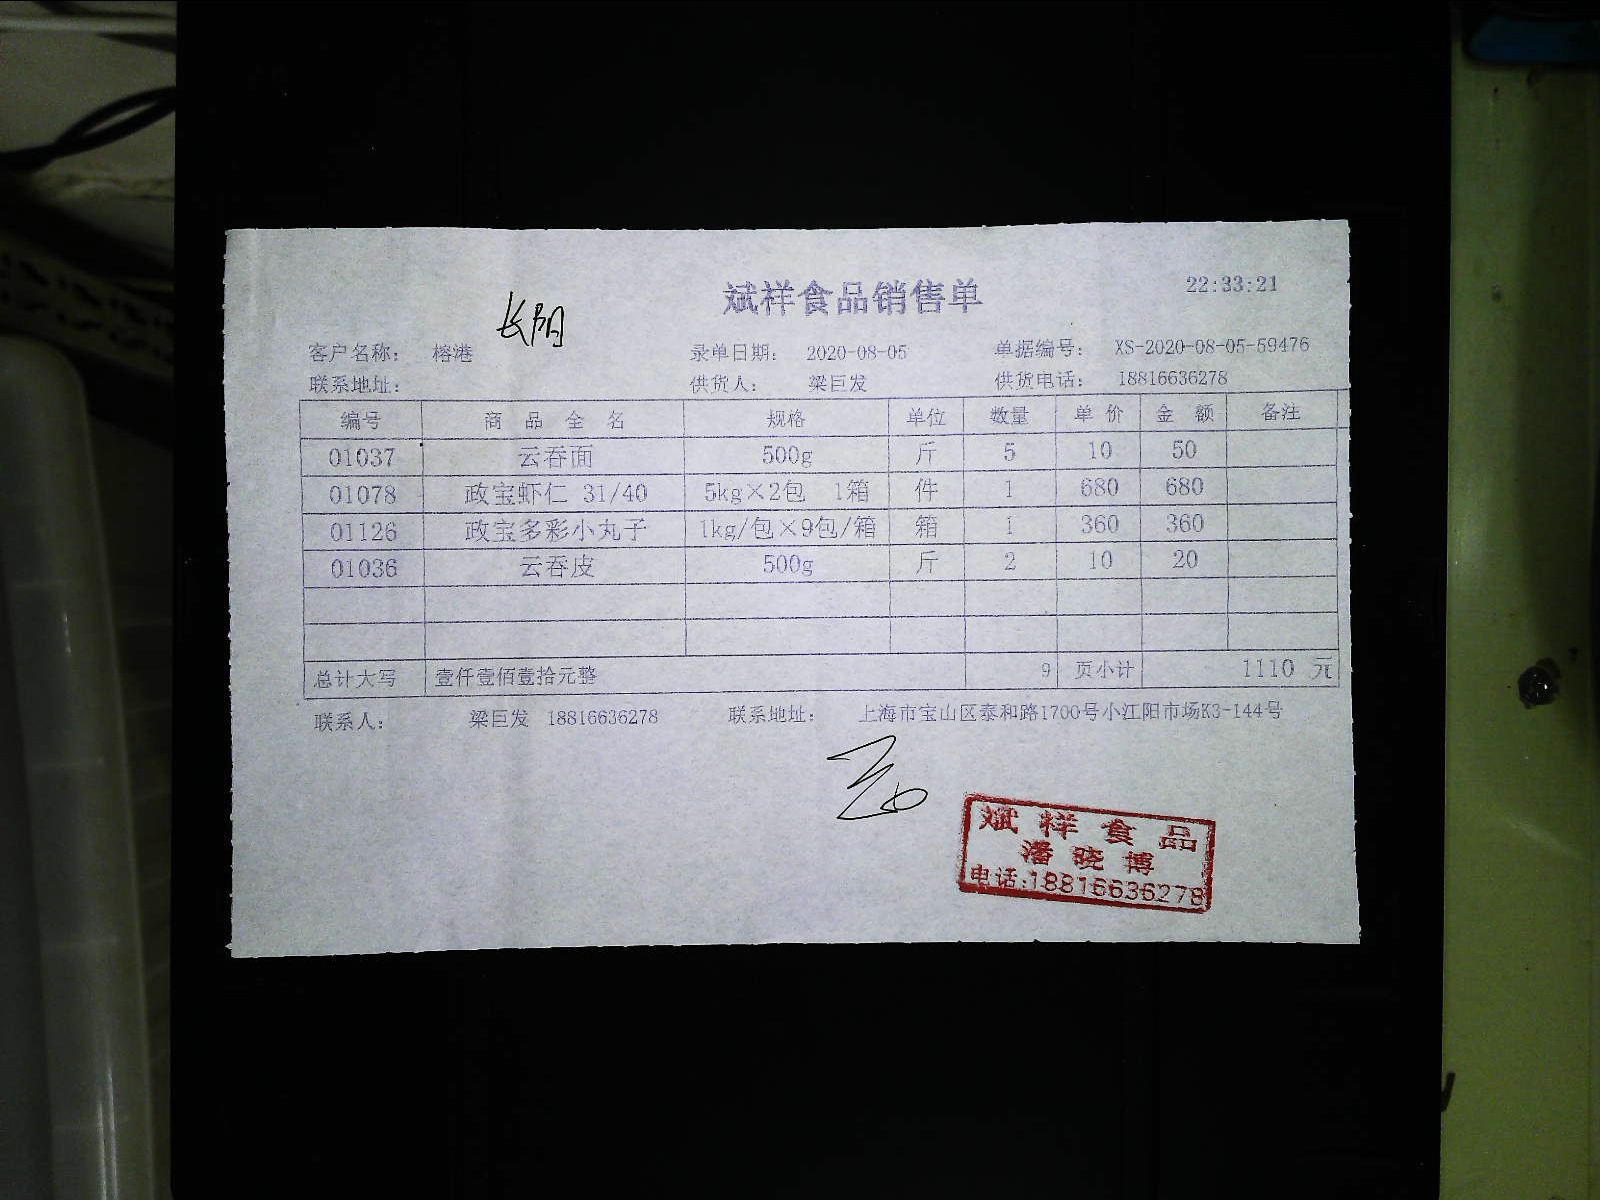 斌祥食品销售单
22:33:21
长阳
客户名称： 榕港 录单日期： 2020-08-05 单据编号： XS-2020-08-05-59476
联系地址： 供货人： 梁巨发 供货电话： 18816636278
编号 商 品 全 名 规格 单位 数量 单 价 金 额 备注
01037 云吞面 500g 斤 5 10 50
01078 政宝虾仁 31/40 5kg×2包 1箱 件 1 680 680
01126 政宝多彩小丸子 1kg/包×9包/箱 箱 1 360 360
01036 云吞皮 500g 斤 2 10 20
总计大写 壹仟壹佰壹拾元整 9 页小计 1110 元
联系人： 梁巨发 18816636278 联系地址： 上海市宝山区泰和路1700号小江阳市场K3-144号
斌祥食品
潘晓博
电话:18816636278